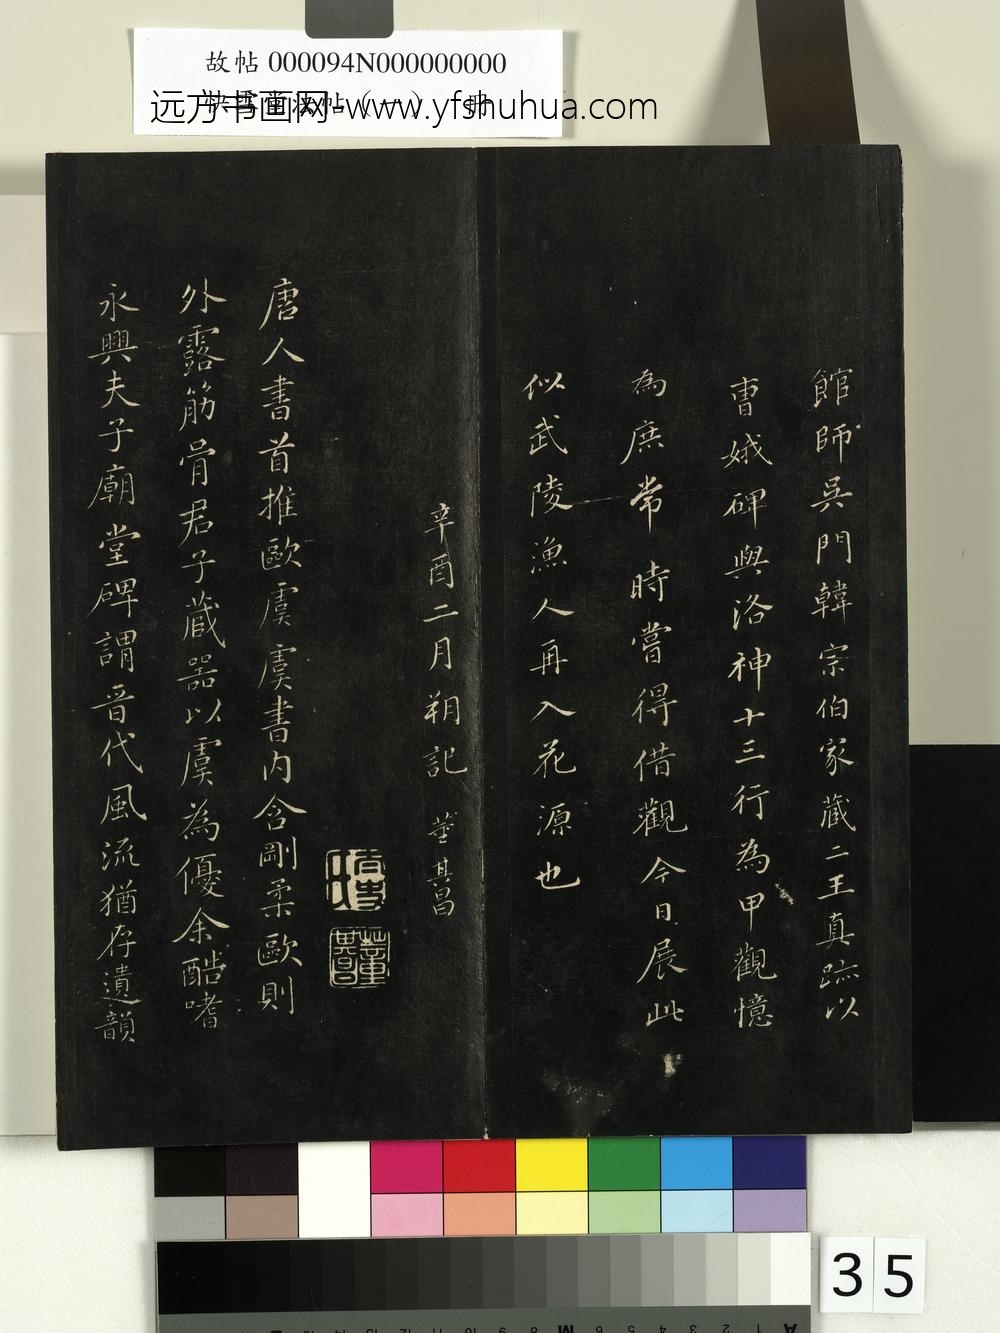 故帖 000094N000000000
远方书画网-www.yfshuhua.com
館師吳門韓宗伯家藏二王真跡以
曹娥碑與洛神十三行為甲觀憶
為庶常時嘗得借觀今日展此
似武陵漁人再入花源也
辛酉二月朔記 董其昌
唐人書首推歐虞虞書内含剛柔歐則
外露筋骨君子藏器以虞為優余酷嗜
永興夫子廟堂碑謂晉代風流猶存遺韻
35